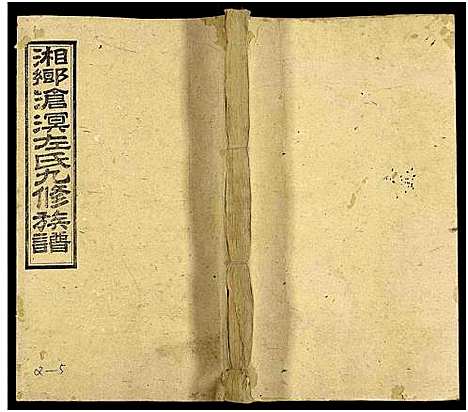 湘鄉滄溟左氏九修族譜
2-5